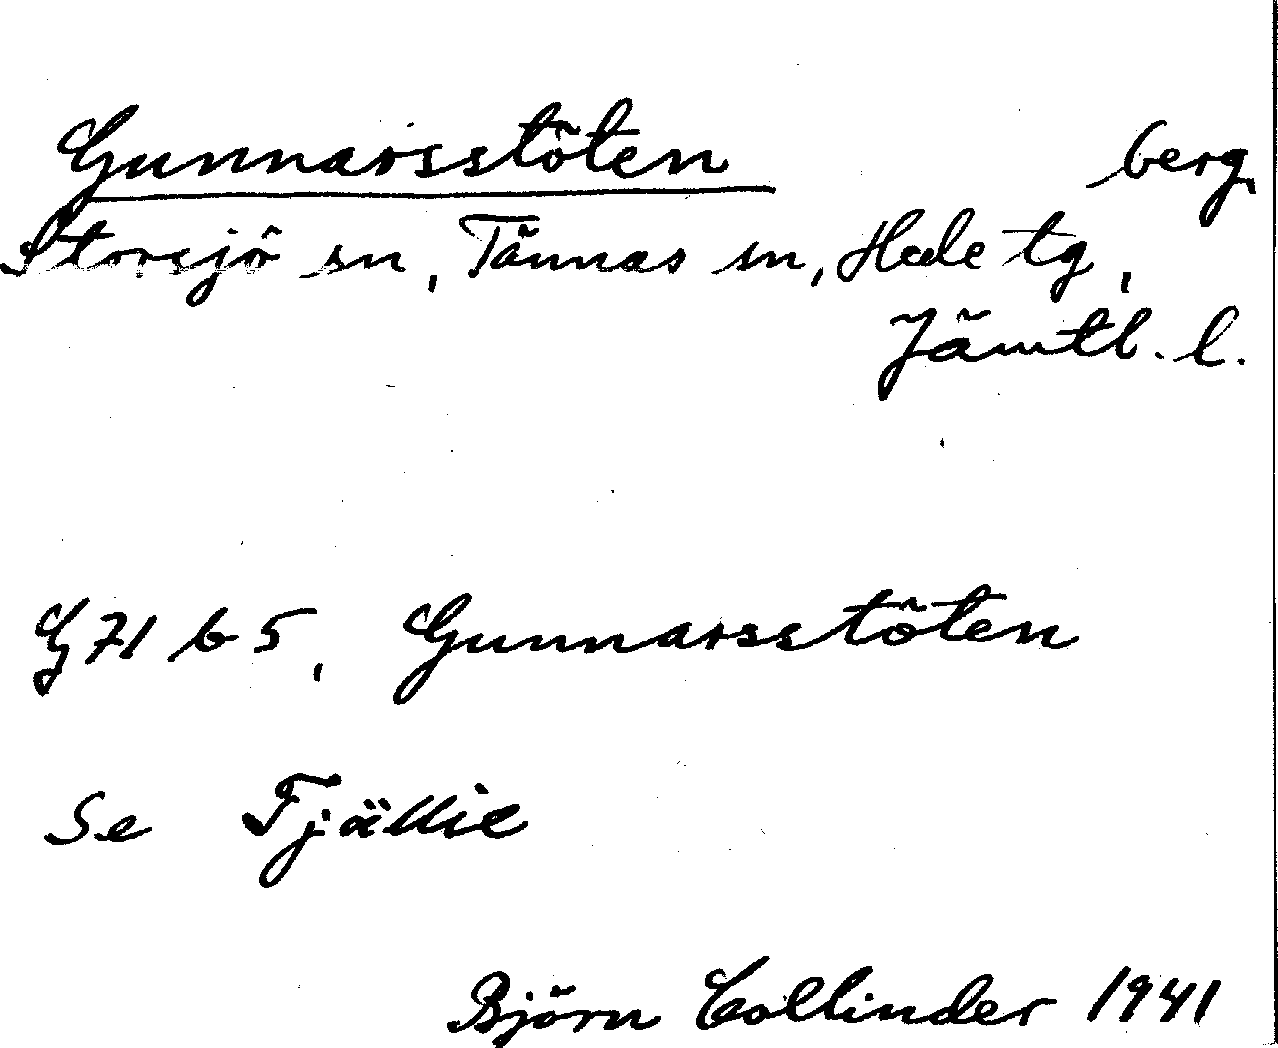 Gunnarsstöten berg,
Storsjö sn, Tännäs sn, Hede tg,
Jämtl. l.
G 71 b 5, Gunnarsstöten
Se Tjällie
Björn Collinder 1941